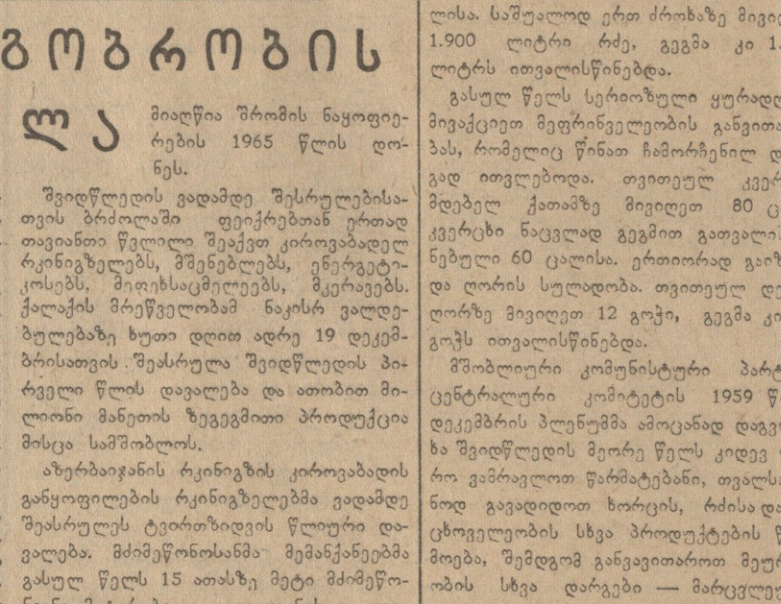 გობრობის
ლა
მიაღწია შრომის ნაყოფიე-
რების 1965 წლის დო-
ნეს.
შვიდწლედის ვადამდე შესრულებისა-
თვის ბრძოლაში ფეიქრებთან ერთად
თავიანთი წვლილი შეაქვთ კიროვაბადელ
რკინიგზელებს, მშენებლებს, ენერგეტი-
კოსებს, მეფეხსაცმელეებს, მკერავებს.
ქალაქის მრეწველობამ ნაკისრ ვალდე-
ბულებაზე ხუთი დღით ადრე 19 დეკემ-
ბრისათვის შეასრულა შვიდწლედის პი-
რველი წლის დავალება და ათობით მი-
ლიონი მანეთის ზეგეგმითი პროდუქცია
მისცა სამშობლოს.
აზერბაიჯანის რკინიგზის კიროვაბადის
განყოფილების რკინიგზელებმა ვადამდე
შეასრულეს ტვირთზიდვის წლიური და-
ვალება. მძიმეწონოსანმა მემანქანეებმა
გასულ წელს 15 ათასზე მეტი მძიმეწო-
ლისა. საშუალოდ ერთ ძროხაზე
1.900 ლიტრი რძე, გეგმა კი
ლიტრს ითვალისწინებდა.
გასულ წელს სერიოზული
მივაქციეთ მეფრინველეობის
ბას, რომელიც წინათ ჩამორჩენილ
გად ითვლებოდა. თვითეულ
მდებელ ქათამზე მივიღეთ 80
კვერცხი ნაცვლად გეგმით
ნებული 60 ცალისა. ერთიორად
და ღორის სულადობა. თვითეულ
ღორზე მივიღეთ 12 გოჭი, გეგმა
გოჭს ითვალისწინებდა.
მშობლიური კომუნისტური
ცენტრალური კომიტეტის 1959
დეკემბრის პლენუმმა ამოცანად
ხა შვიდწლედის მეორე წელს კიდევ
რო ვამრავლოთ წარმატებანი,
ნოდ გავადიდოთ ხორცის, რძისა და
ცხოველეობის სხვა პროდუქტების
მოება, შემდგომ განვავითაროთ
ობის სხვა დარგები —